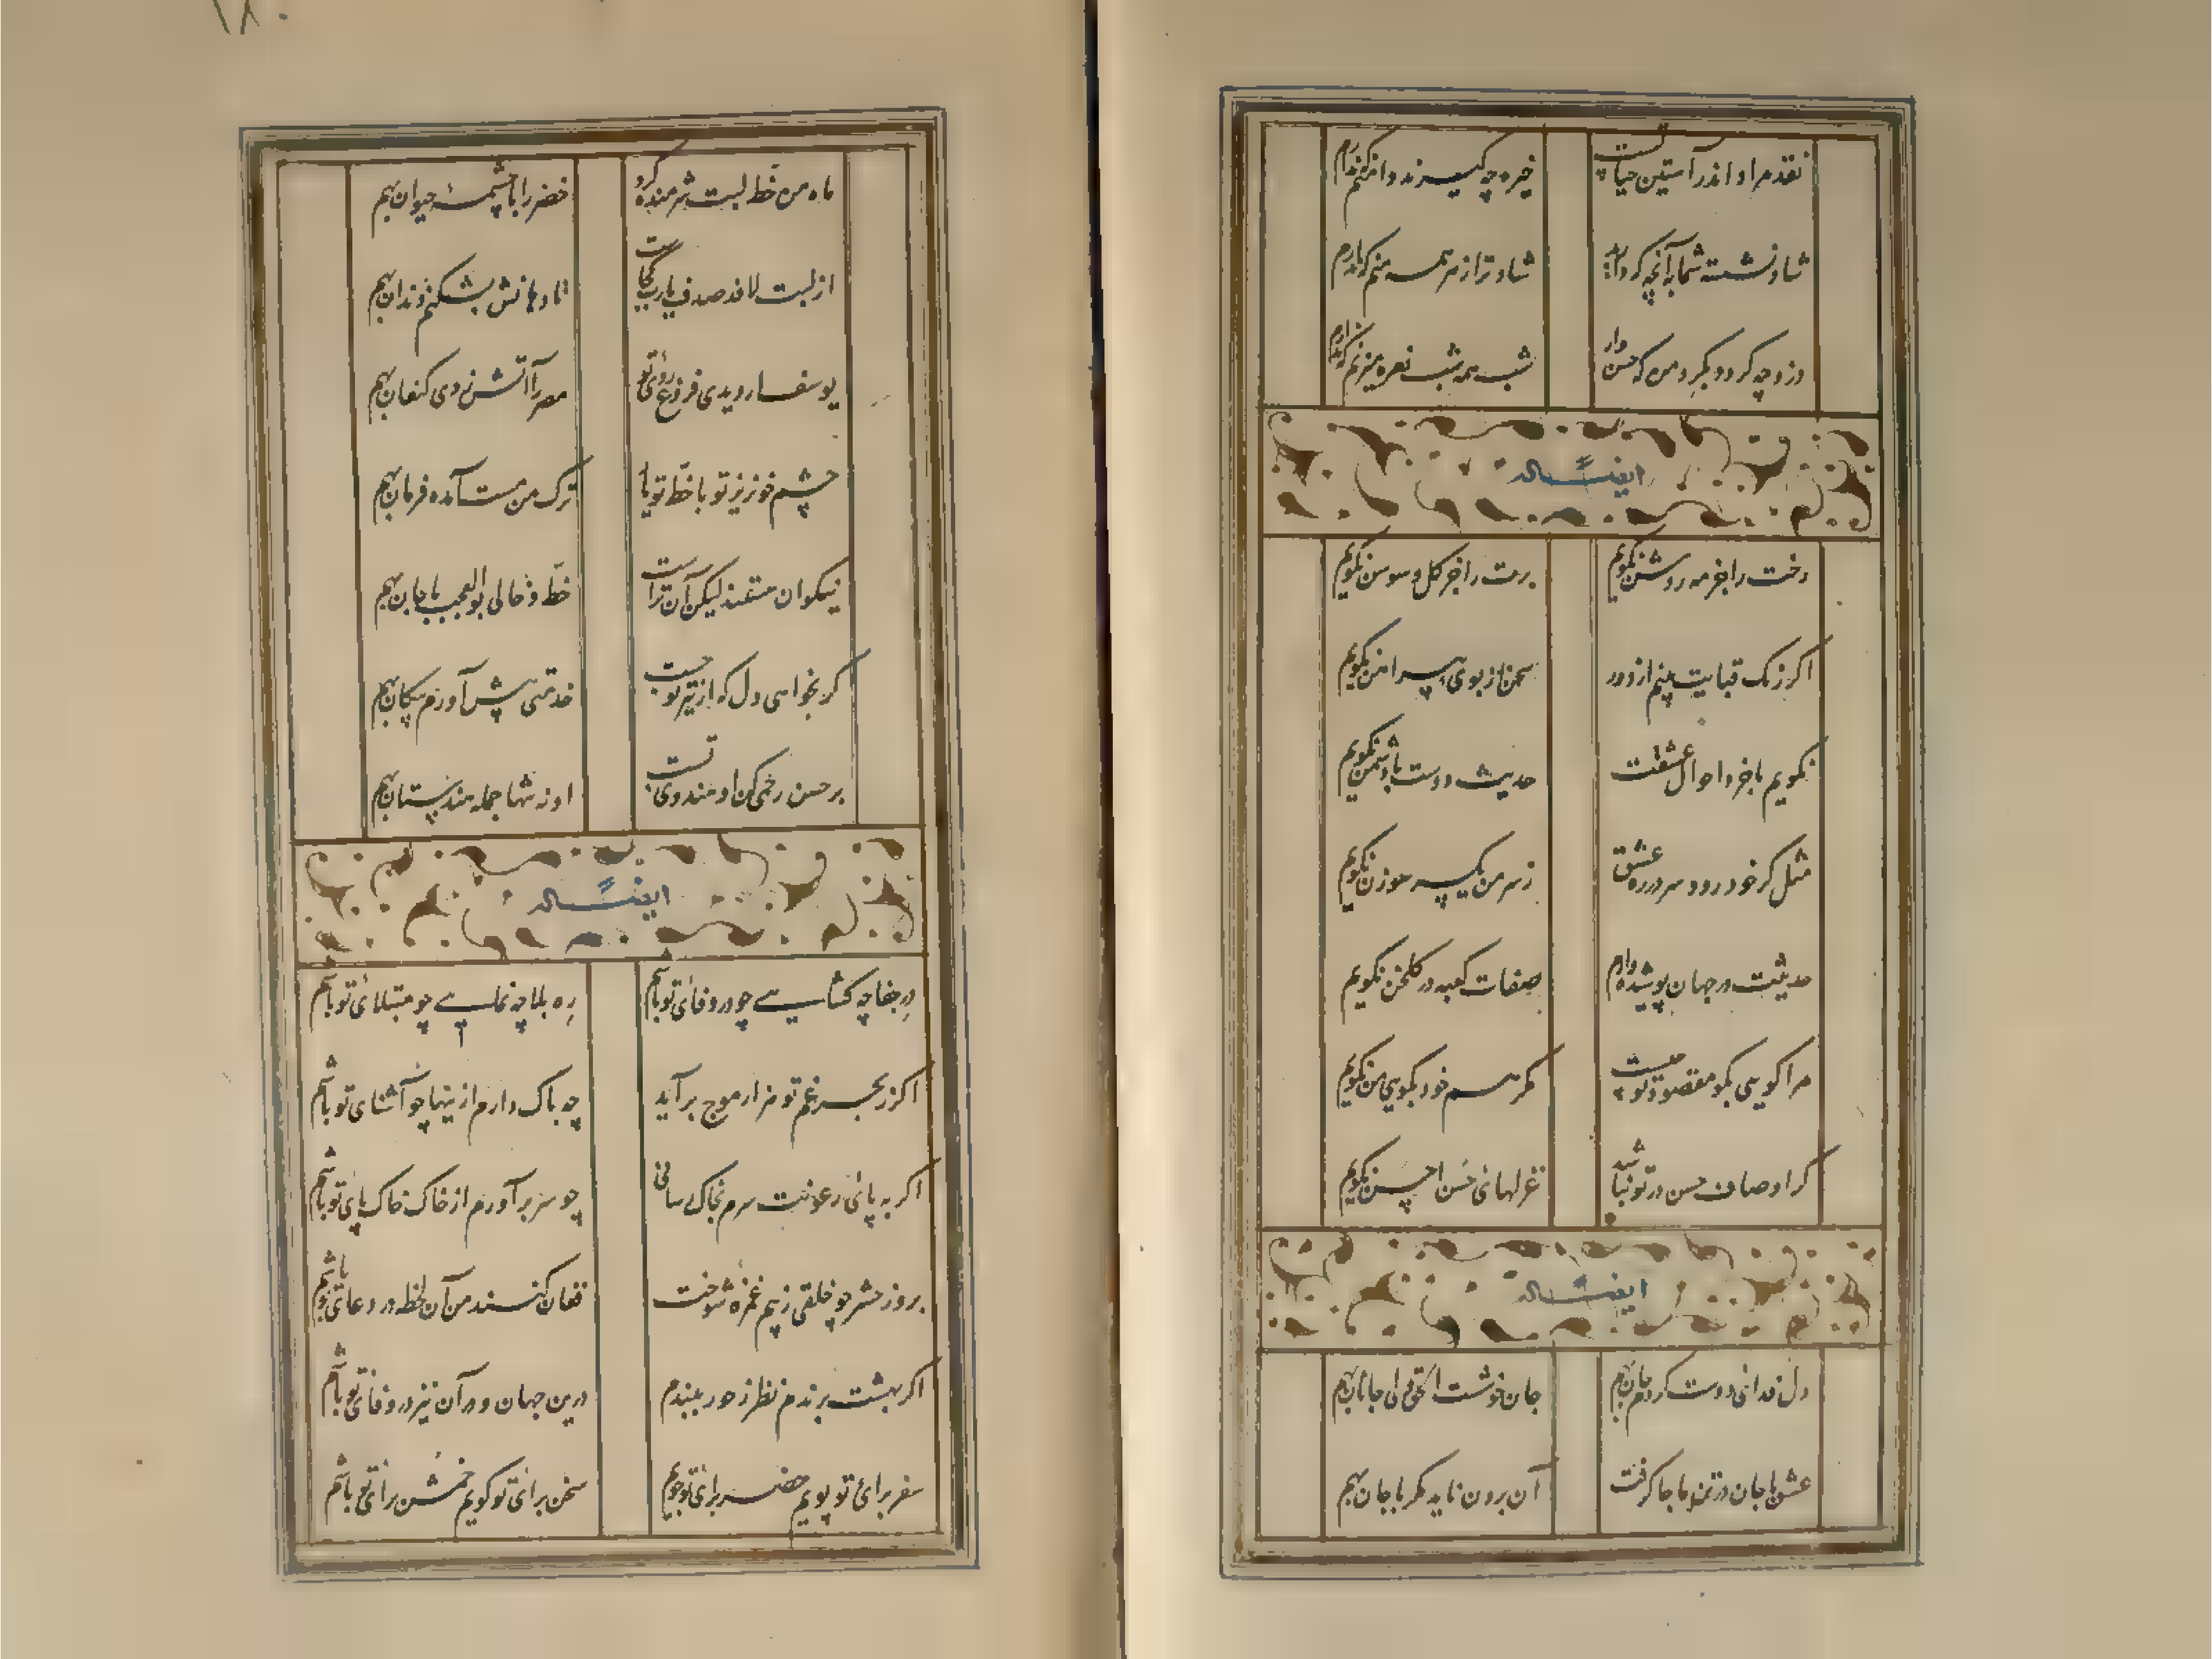 نقد مراد اندر آستین حیاتست خیره چه گیرند دامنم که ندارم
شاد نشسته شما به آنچه که دارید شادتر از هر همه منم که ندارم
دزد چه گردد بگرد من که حسن وار شب همه شب نعره میزنم که ندارم
ایضاً له
رخت را جز مه روشن نگویم برت را جز گل و سوسن نگویم
اگر رنگ قبایت بینم از دور سخن از بوی پیراهن نگویم
نگویم با خرد احوال عشقت حدیث دوست با دشمن نگویم
مثل گر خود رود سر در ره عشق ز سر من یک سر سوزن نگویم
حدیثت در جهان پوشیده دارم صفات کعبه در گلخن نگویم
مرا گویی بگو مقصود تو چیست مگر هم خود بگویی من نگویم
گر اوصاف حسن در تو نباشد غزلهای حسن احسن نگویم
ایضاً له
دل فدای دوست کردم جان بهم جان خوشست الحق ولی جانان بهم
عشق با جان در تنم ما جا گرفت آن برون ناید مگر با جان بهم
ماه من خط لبت شرمنده کرد خضر را با چشمهٔ حیوان بهم
از لبت لافد صدف یارب کجاست تا دهانش بشکنم دندان بهم
یوسفا رو دیدی فروغ روی تو مصر را آتش زدی کنعان بهم
چشم خونریز تو با خط تو یا ترک من مست آمده فرمان بهم
نیکوان هستند لیکن آن تراست خط و خالی بوالعجب با جان بهم
گر بخواهی دل که از تیر تو جست خدمتی پیش آورم پیکان بهم
بر حسن رحمی کن او هندوی تست او نه تنها جمله هندستان بهم
ایضاً له
در جفا چه گشایی چو در وفای تو باشم ره بلا چه نمایی چو مبتلای تو باشم
اگر ز بحر غم تو هزار موج بر آید چه باک دارم ازینها چو آشنای تو باشم
اگر به پای رعونت سرم بخاک رسانی چو سر بر آورم از خاک خاک پای تو باشم
بروز حشر چو خلقی ز بیم غمزه شوخت فغان کنند من آن لحظه در دعای تو باشم
اگر بهشت برندم نظر ز حور ببندم درین جهان و در آن نیز در وفای تو باشم
سفر برای تو پویم حضر برای تو جویم سخن برای تو گویم خمش برای تو باشم